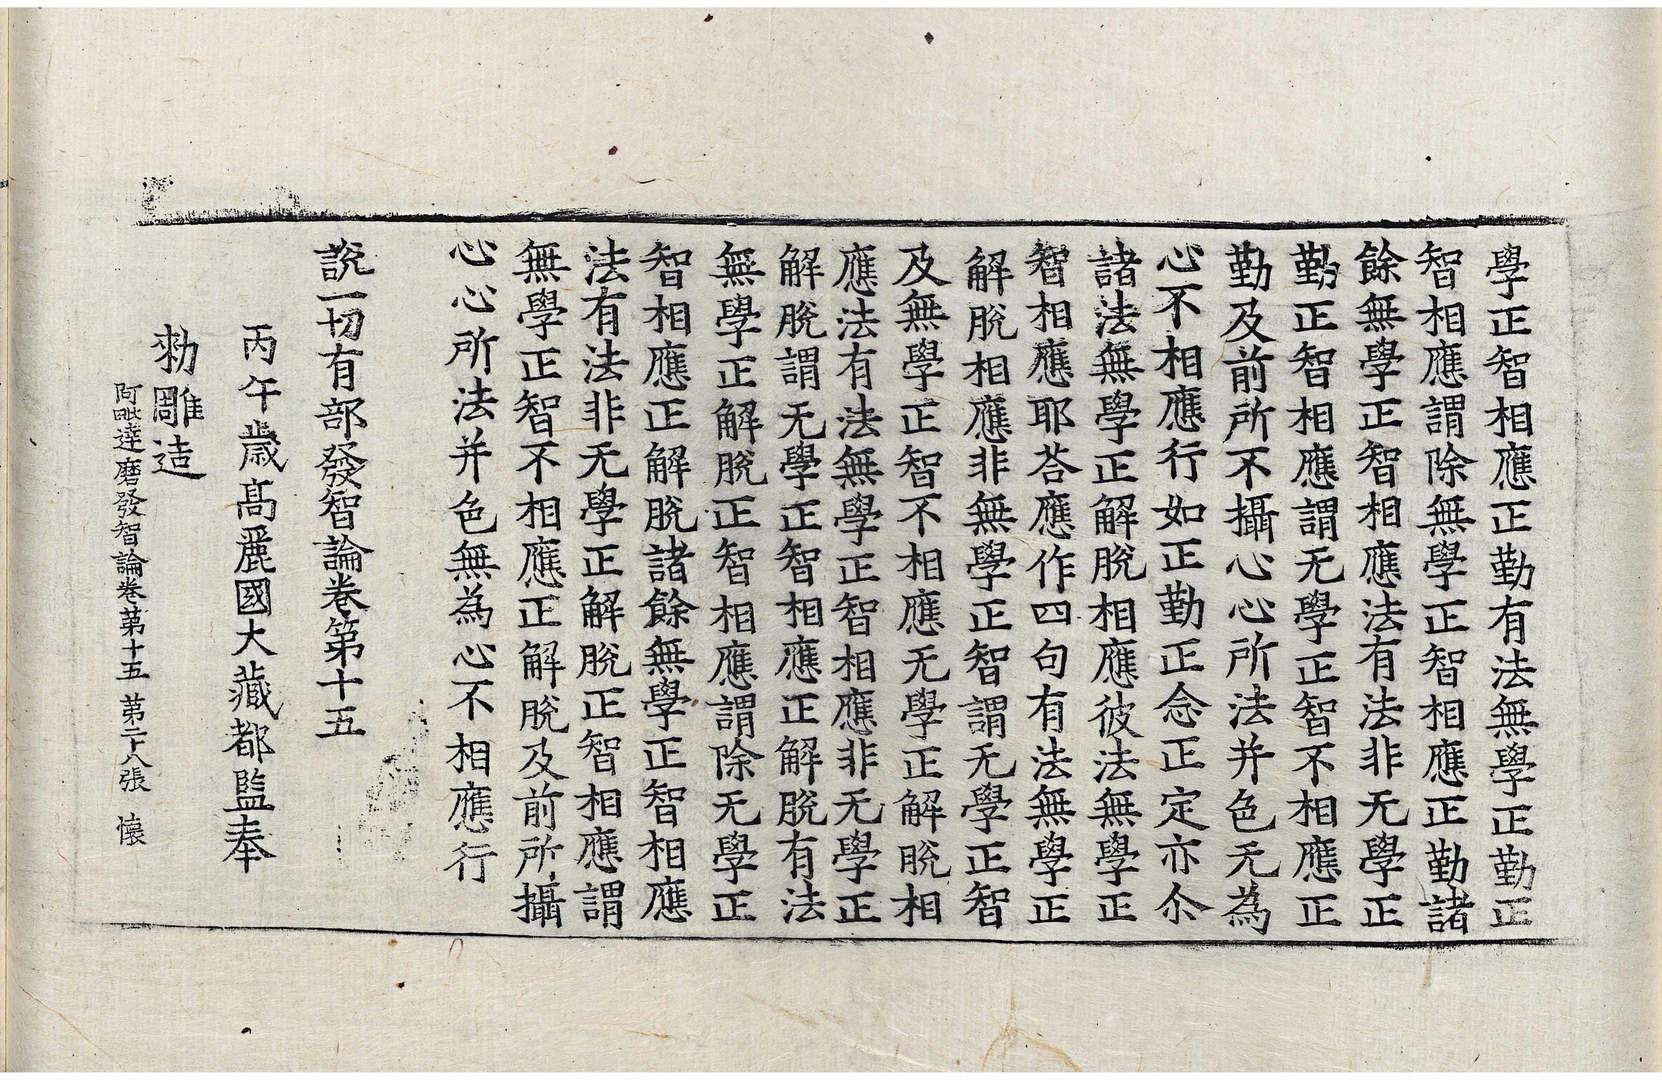 學正智相應正勤有法無學正勤正
智相應謂除無學正智相應正勤諸
餘無學正智相應法有法非无學正
勤正智相應謂无學正智不相應正
勤及前所不攝心心所法并色无為
心不相應行如正勤正念正定亦尒
諸法無學正解脫相應彼法無學正
智相應耶荅應作四句有法無學正
解脫相應非無學正智謂无學正智
及無學正智不相應无學正解脫相
應法有法無學正智相應非无學正
解脫謂无學正智相應正解脫有法
無學正解脫正智相應謂除无學正
智相應正解脫諸餘無學正智相應
法有法非无學正解脫正智相應謂
無學正智不相應正解脫及前所攝
心心所法并色無為心不相應行
說一切有部發智論卷第十五
丙午歲高麗國大藏都監奉
勑雕造
阿毗達磨發智論卷第十五 第二十八張 懷